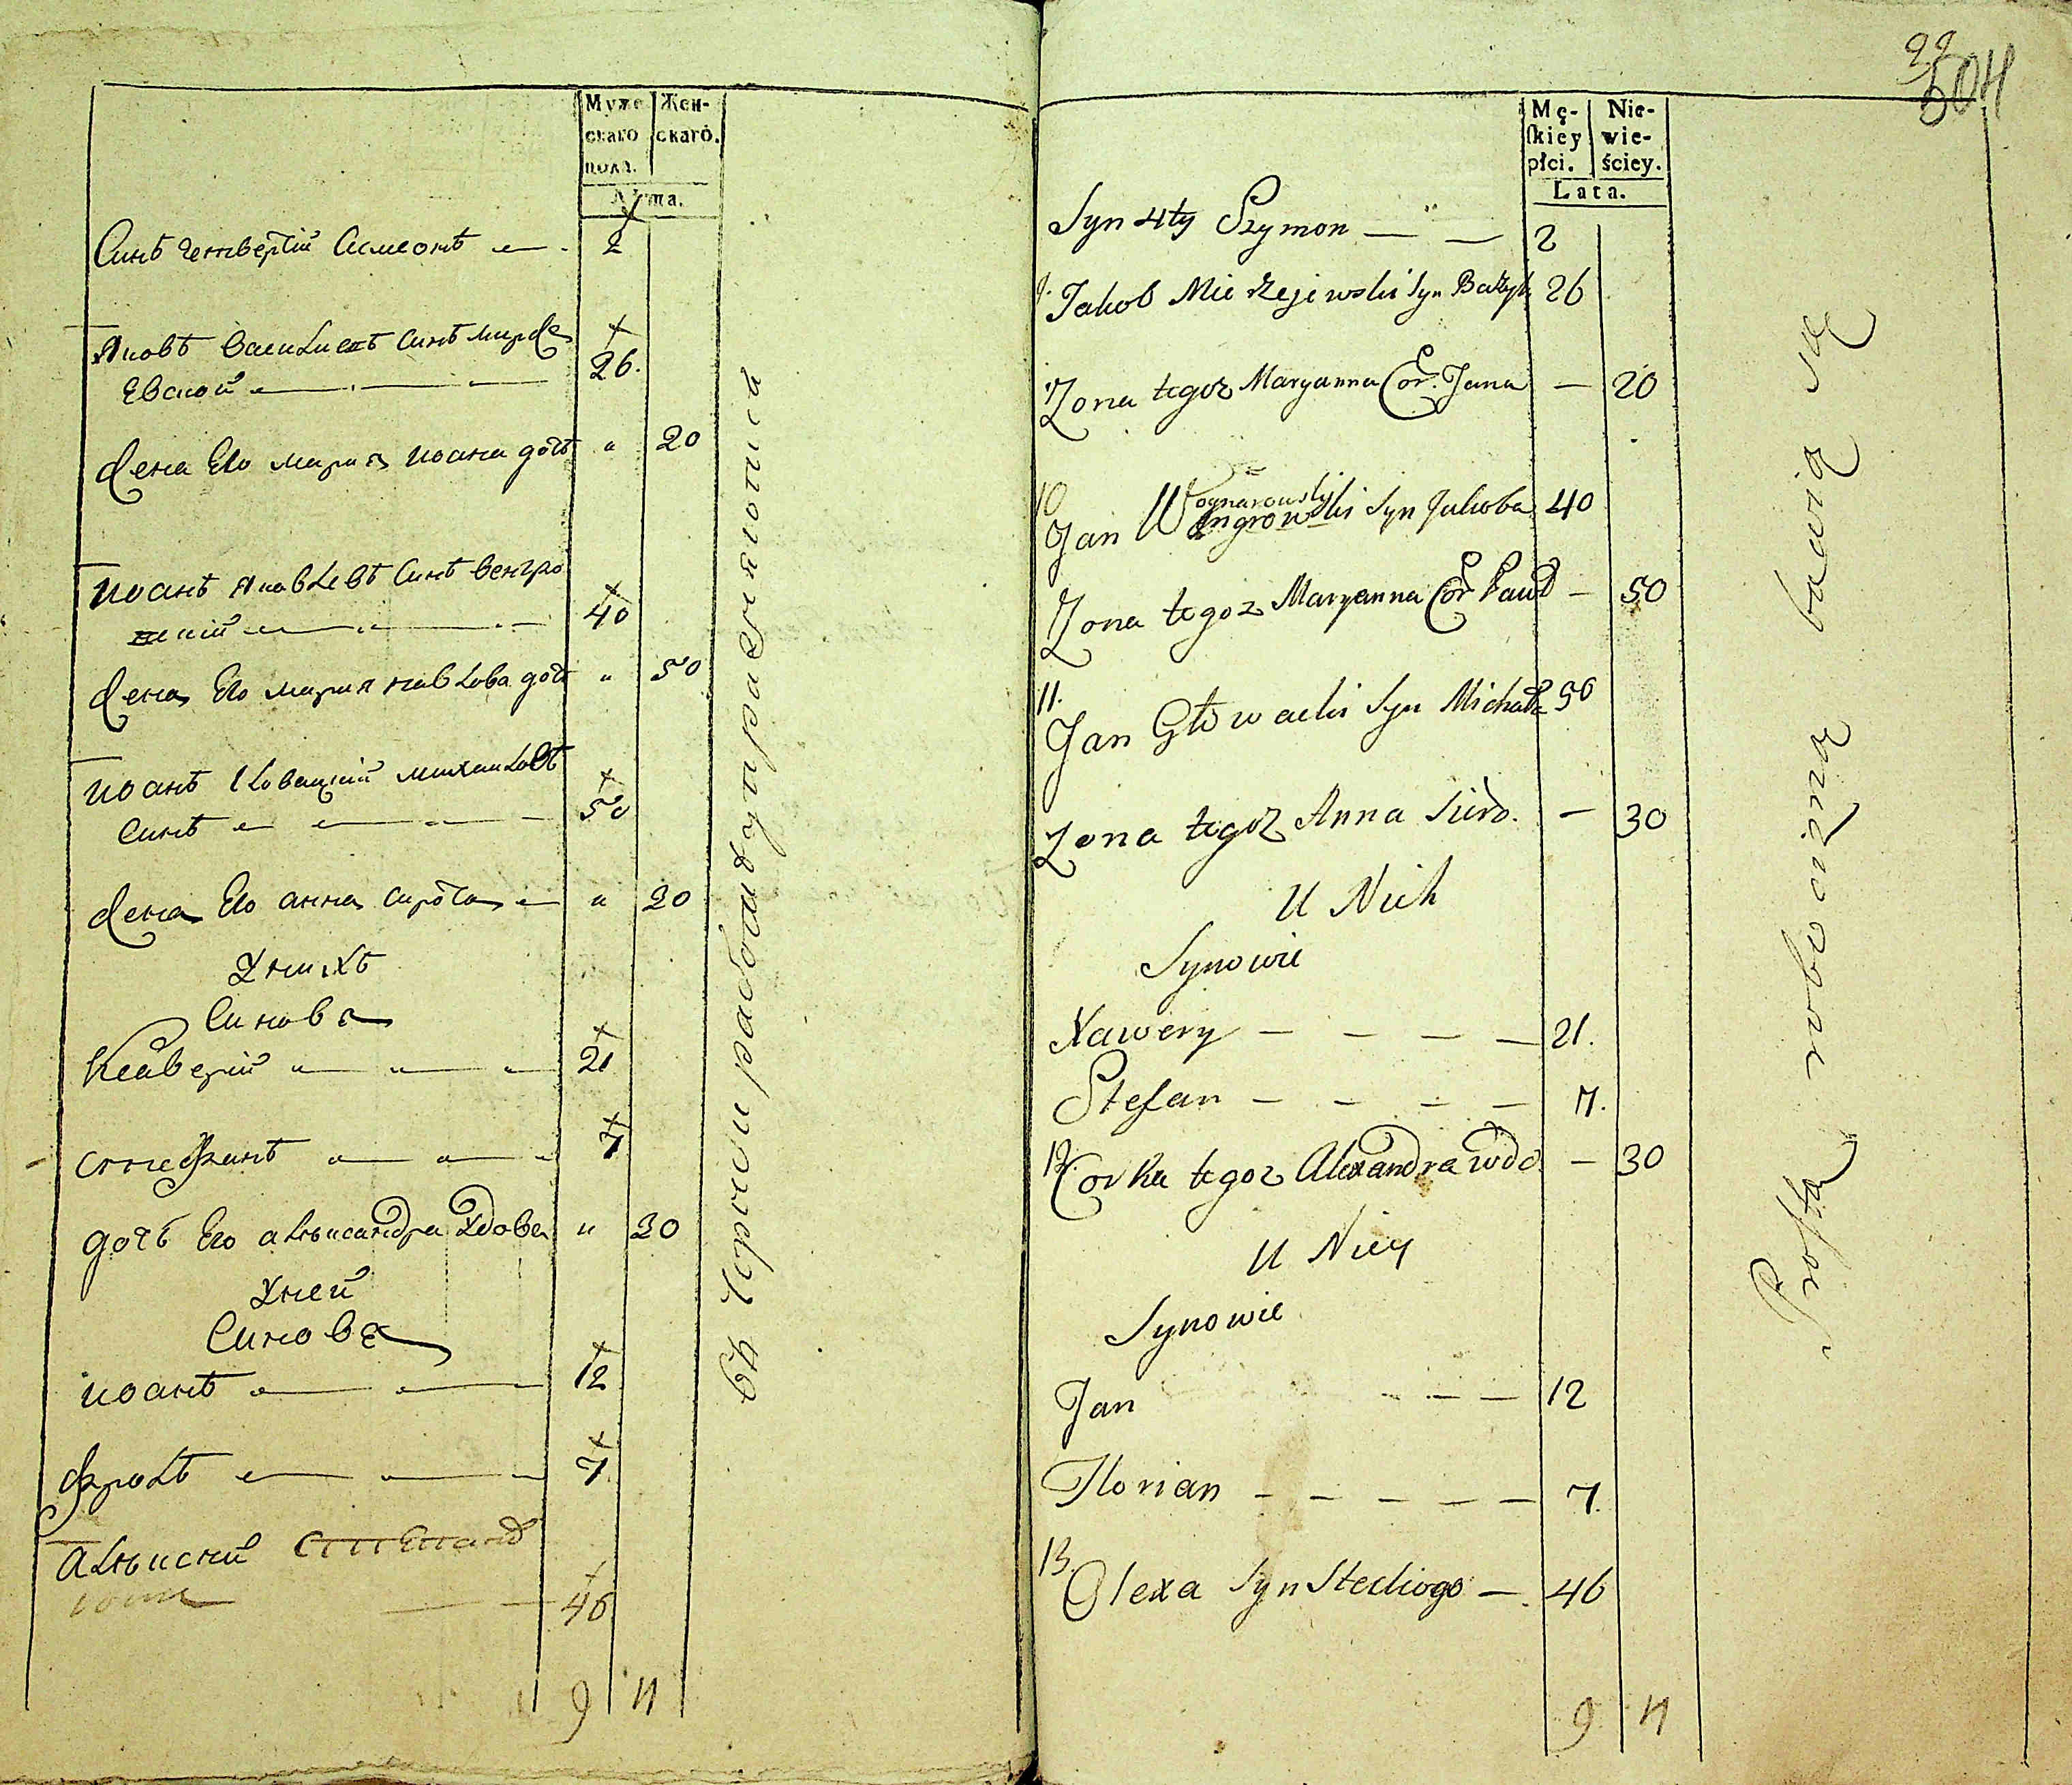 Муже
скаго
пола.
Жен-
скаго.
Лѣта.
Синъ четвертій Симеонъ 2
Яковъ Василиевъ Синъ мирже
Евской 26.
жена Его мария иоана дочь " 20
иоанъ Яковлевъ Синъ венгро
вский 40
жена Его мария павлова дочь " 50
иоанъ Гловацкий михаиловъ
Синъ 50
жена Его анна сирота " 30
Унихъ
Синовя
Ксаверий 21
стефанъ 7
дочь Его алѣксандра вдова " 30
Уней
Синовя
иоанъ 12
фролъ 7
алѣксий
46
9 4
въ Черном работы упражняются
22
504
Mę-
ſkiey
płci.
Nie-
wie-
ściey.
Lata.
Syn 4ty Szymon — — 2
9. Jakob Mierzejewski Syn Bazyl 26
Zona tegoz Maryanna Cor. Jana — 20
10
Woynarowski
Jan Wengrowski Syn Jakoba 40
Zona tegoz Maryanna Cor Pawł — 50
11.
Jan Głowacki Syn Michała 50
Zona tegoz Anna Siero. — 30
U Nich
Synowie
Xawery — — — — 21.
Stefan — — — — 7.
12. Corka tegoz Alexandra wdo. — 30
U Niey
Synowie
Jan — — — 12
Florian — — — — — 7.
13.
Olexa Syn Steckiogo — 46
9 4
Prosta robocizną bawią się